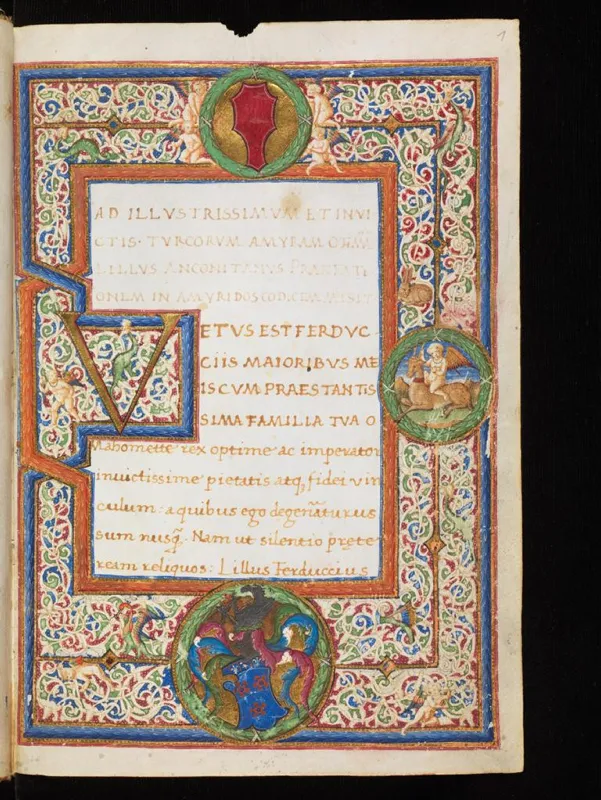 1
AD ILLVSTRISSIMVM ET INVI
CTIS· TVRCORVM AMYRAM
LILLVS ANCONITANVS PRAEFATI
ONEM IN AMYRIDOS CODICEM MISIT
VETVS EST FERDVC
CIIS MAIORIBVS ME
IS CVM PRAESTANTIS
SIMA FAMILIA TVA O
Mahomette rex optime ac imperator
inuictissime pietatis atq, fidei vin
culum: a quibus ego degen̄aturus
sum nusq̄. Nam ut silentio prȩte
ream reliquos: Lillus Ferduccius